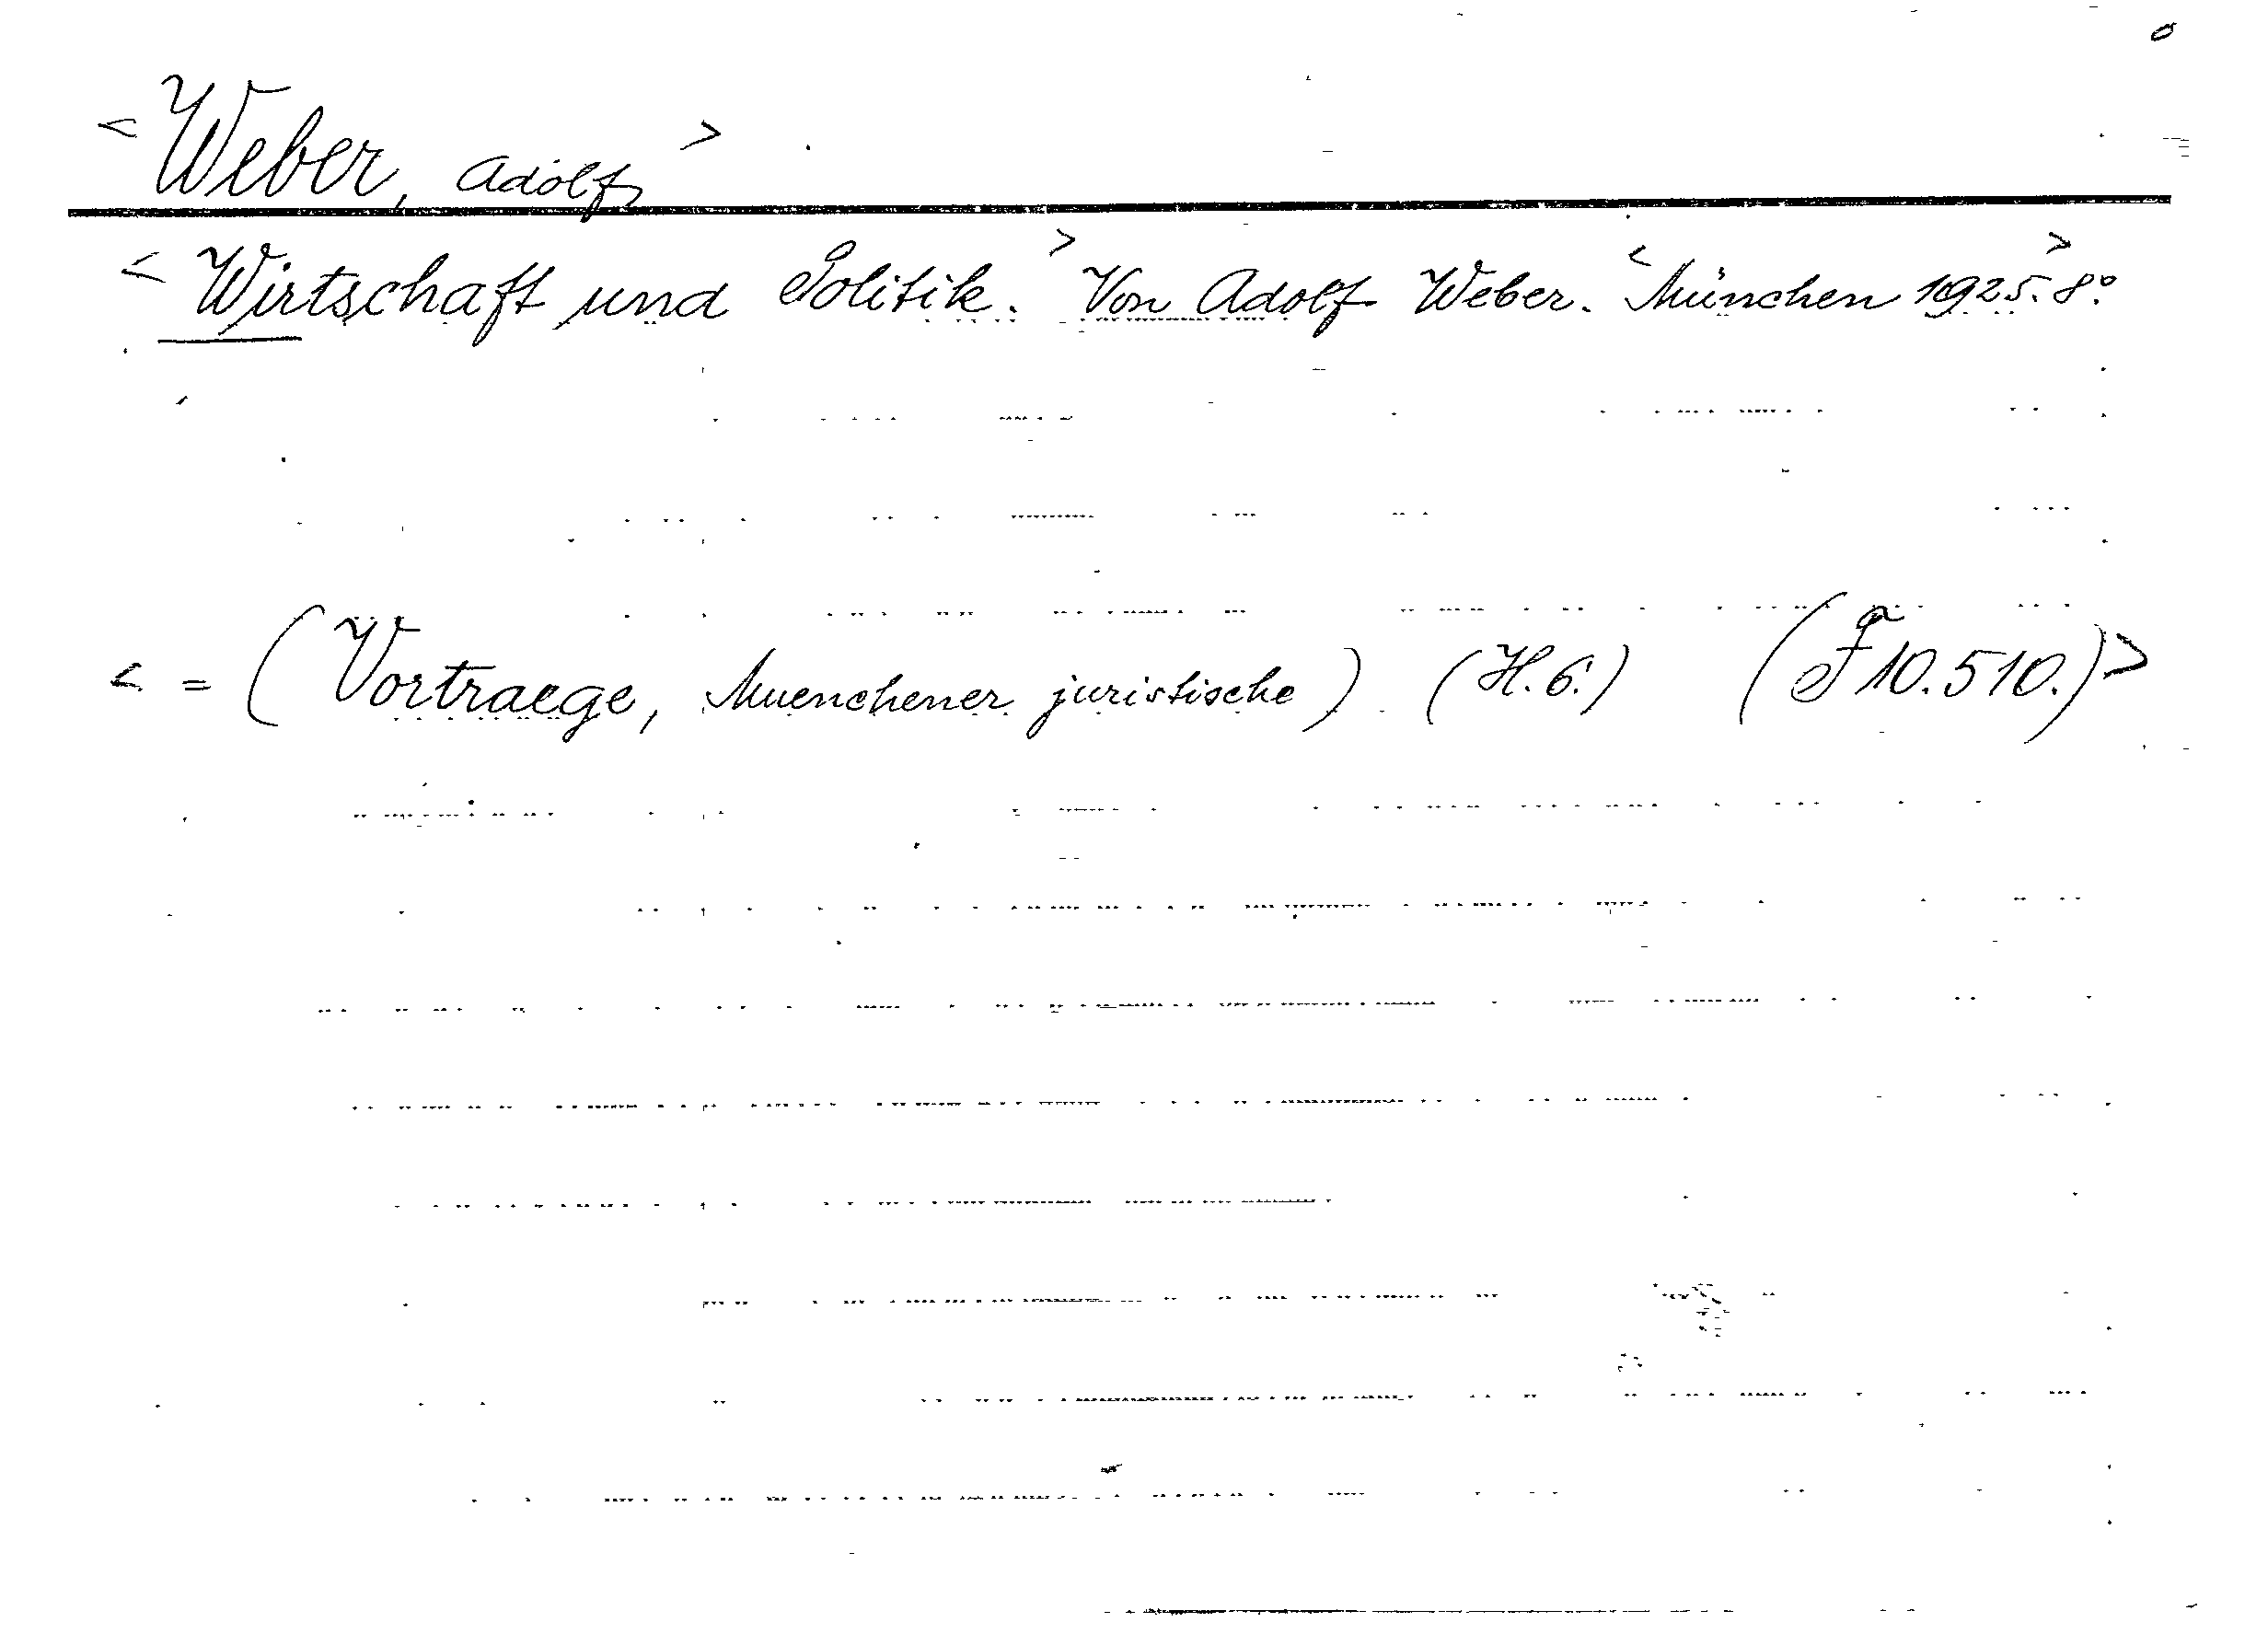 <Weber, Adolf>
<Wirtschaft und Politik.> Von Adolf Weber. <München 1925.> 8°.
<=(Vortraege, Muenchener juristische) (H.6.) (F 10.510.)>